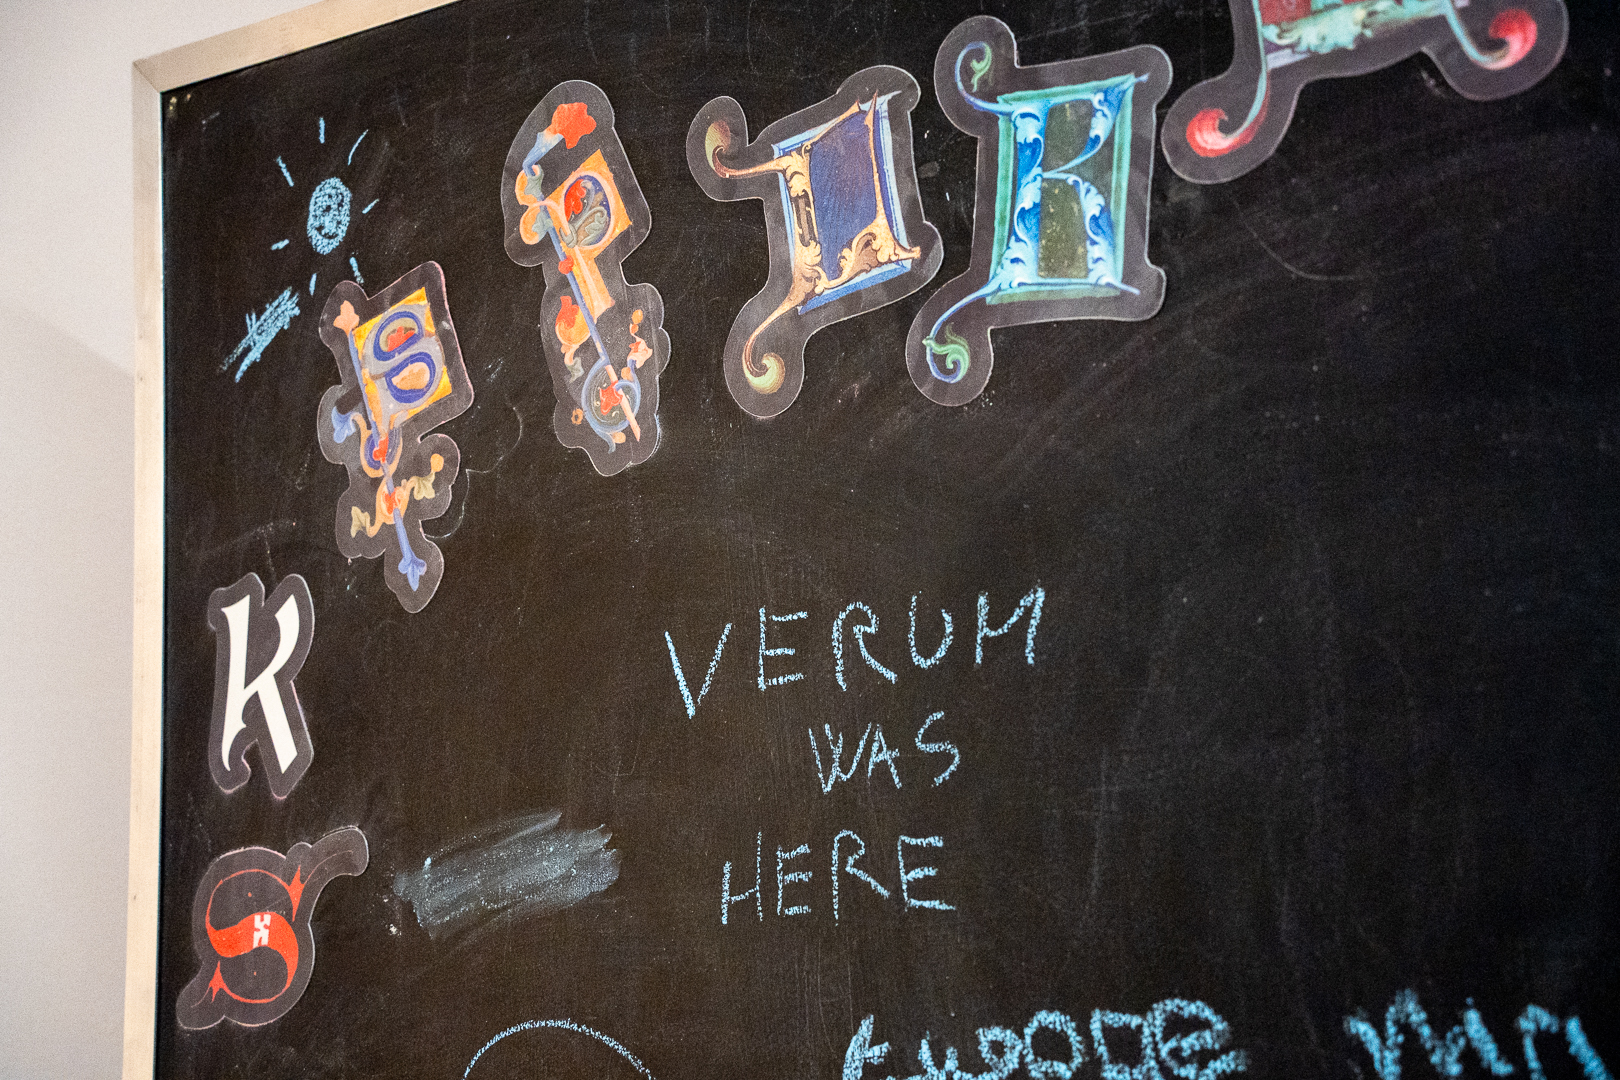 S P I R
K
S
VERUM
WAS
HERE